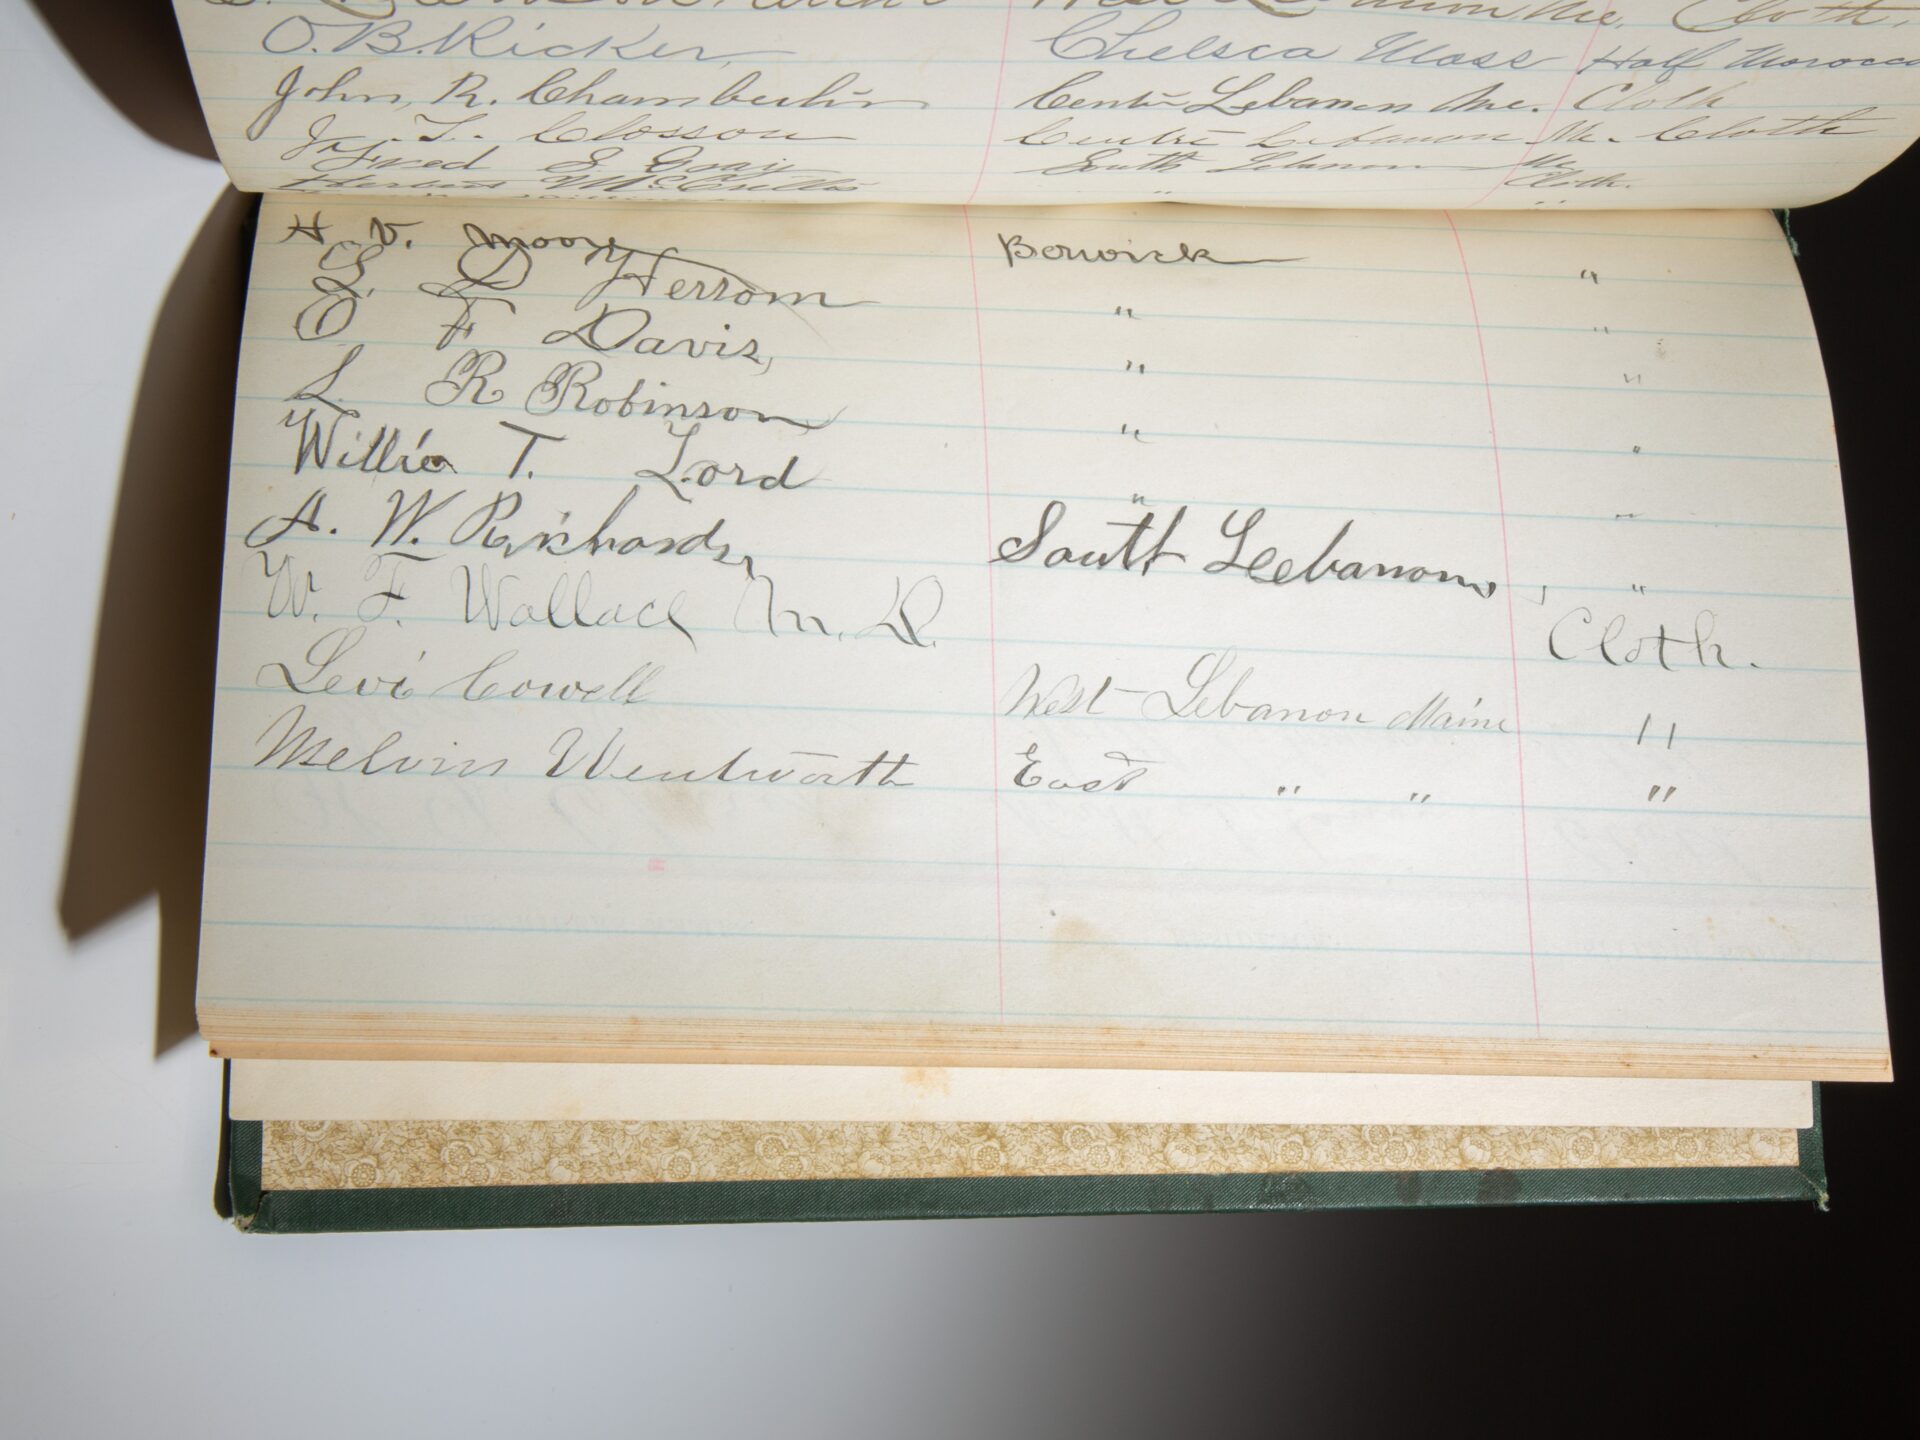 O. B. Ricker, Chelsea Mass Half Morocco
John, R. Chamberlin Centre Lebanon Me. Cloth
J. T. Closson Centre Lebanon Me. Cloth
Fred S. Gray South Lebanon Me Cloth.
Herbert McCrillis " "
H V. Moore Berwick "
S. D Herrom " "
O F Davis, " "
L. R Robinson " "
Willie T. Lord " "
A. W. Richards, South Leebanon, "
W. F. Wallace M. D. Cloth.
Levi Cowell West Lebanon Maine "
Melvin Wentworth East " " "